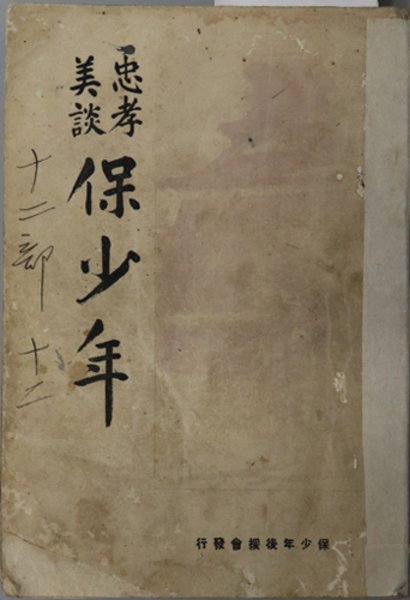 忠孝
美談
保少年
十二部 十二
保少年後援會發行